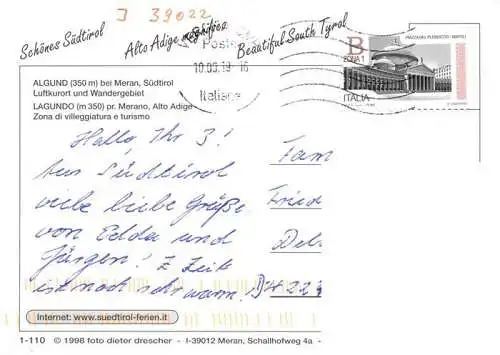 J 39022
Schönes Südtirol
Alto Adige
Beautiful South Tyrol
Poste
10.05.19 - 16
Italiane
PIAZZA DEL PLEBISCITO - NAPOLI
B
ZONA 1
ITALIA
ALGUND (350 m) bei Meran, Südtirol
Luftkurort und Wandergebiet
LAGUNDO (m 350) pr. Merano, Alto Adige
Zona di villeggiatura e turismo
Hallo, Ihr 3!
Aus Südtirol
viele liebe Grüße
von Edda und
Jürgen! Z. Zeit
ist noch sehr warm!
Fam
Fried
Del
Internet: www.suedtirol-ferien.it
1-110 © 1998 foto dieter drescher - I-39012 Meran, Schallhofweg 4a -